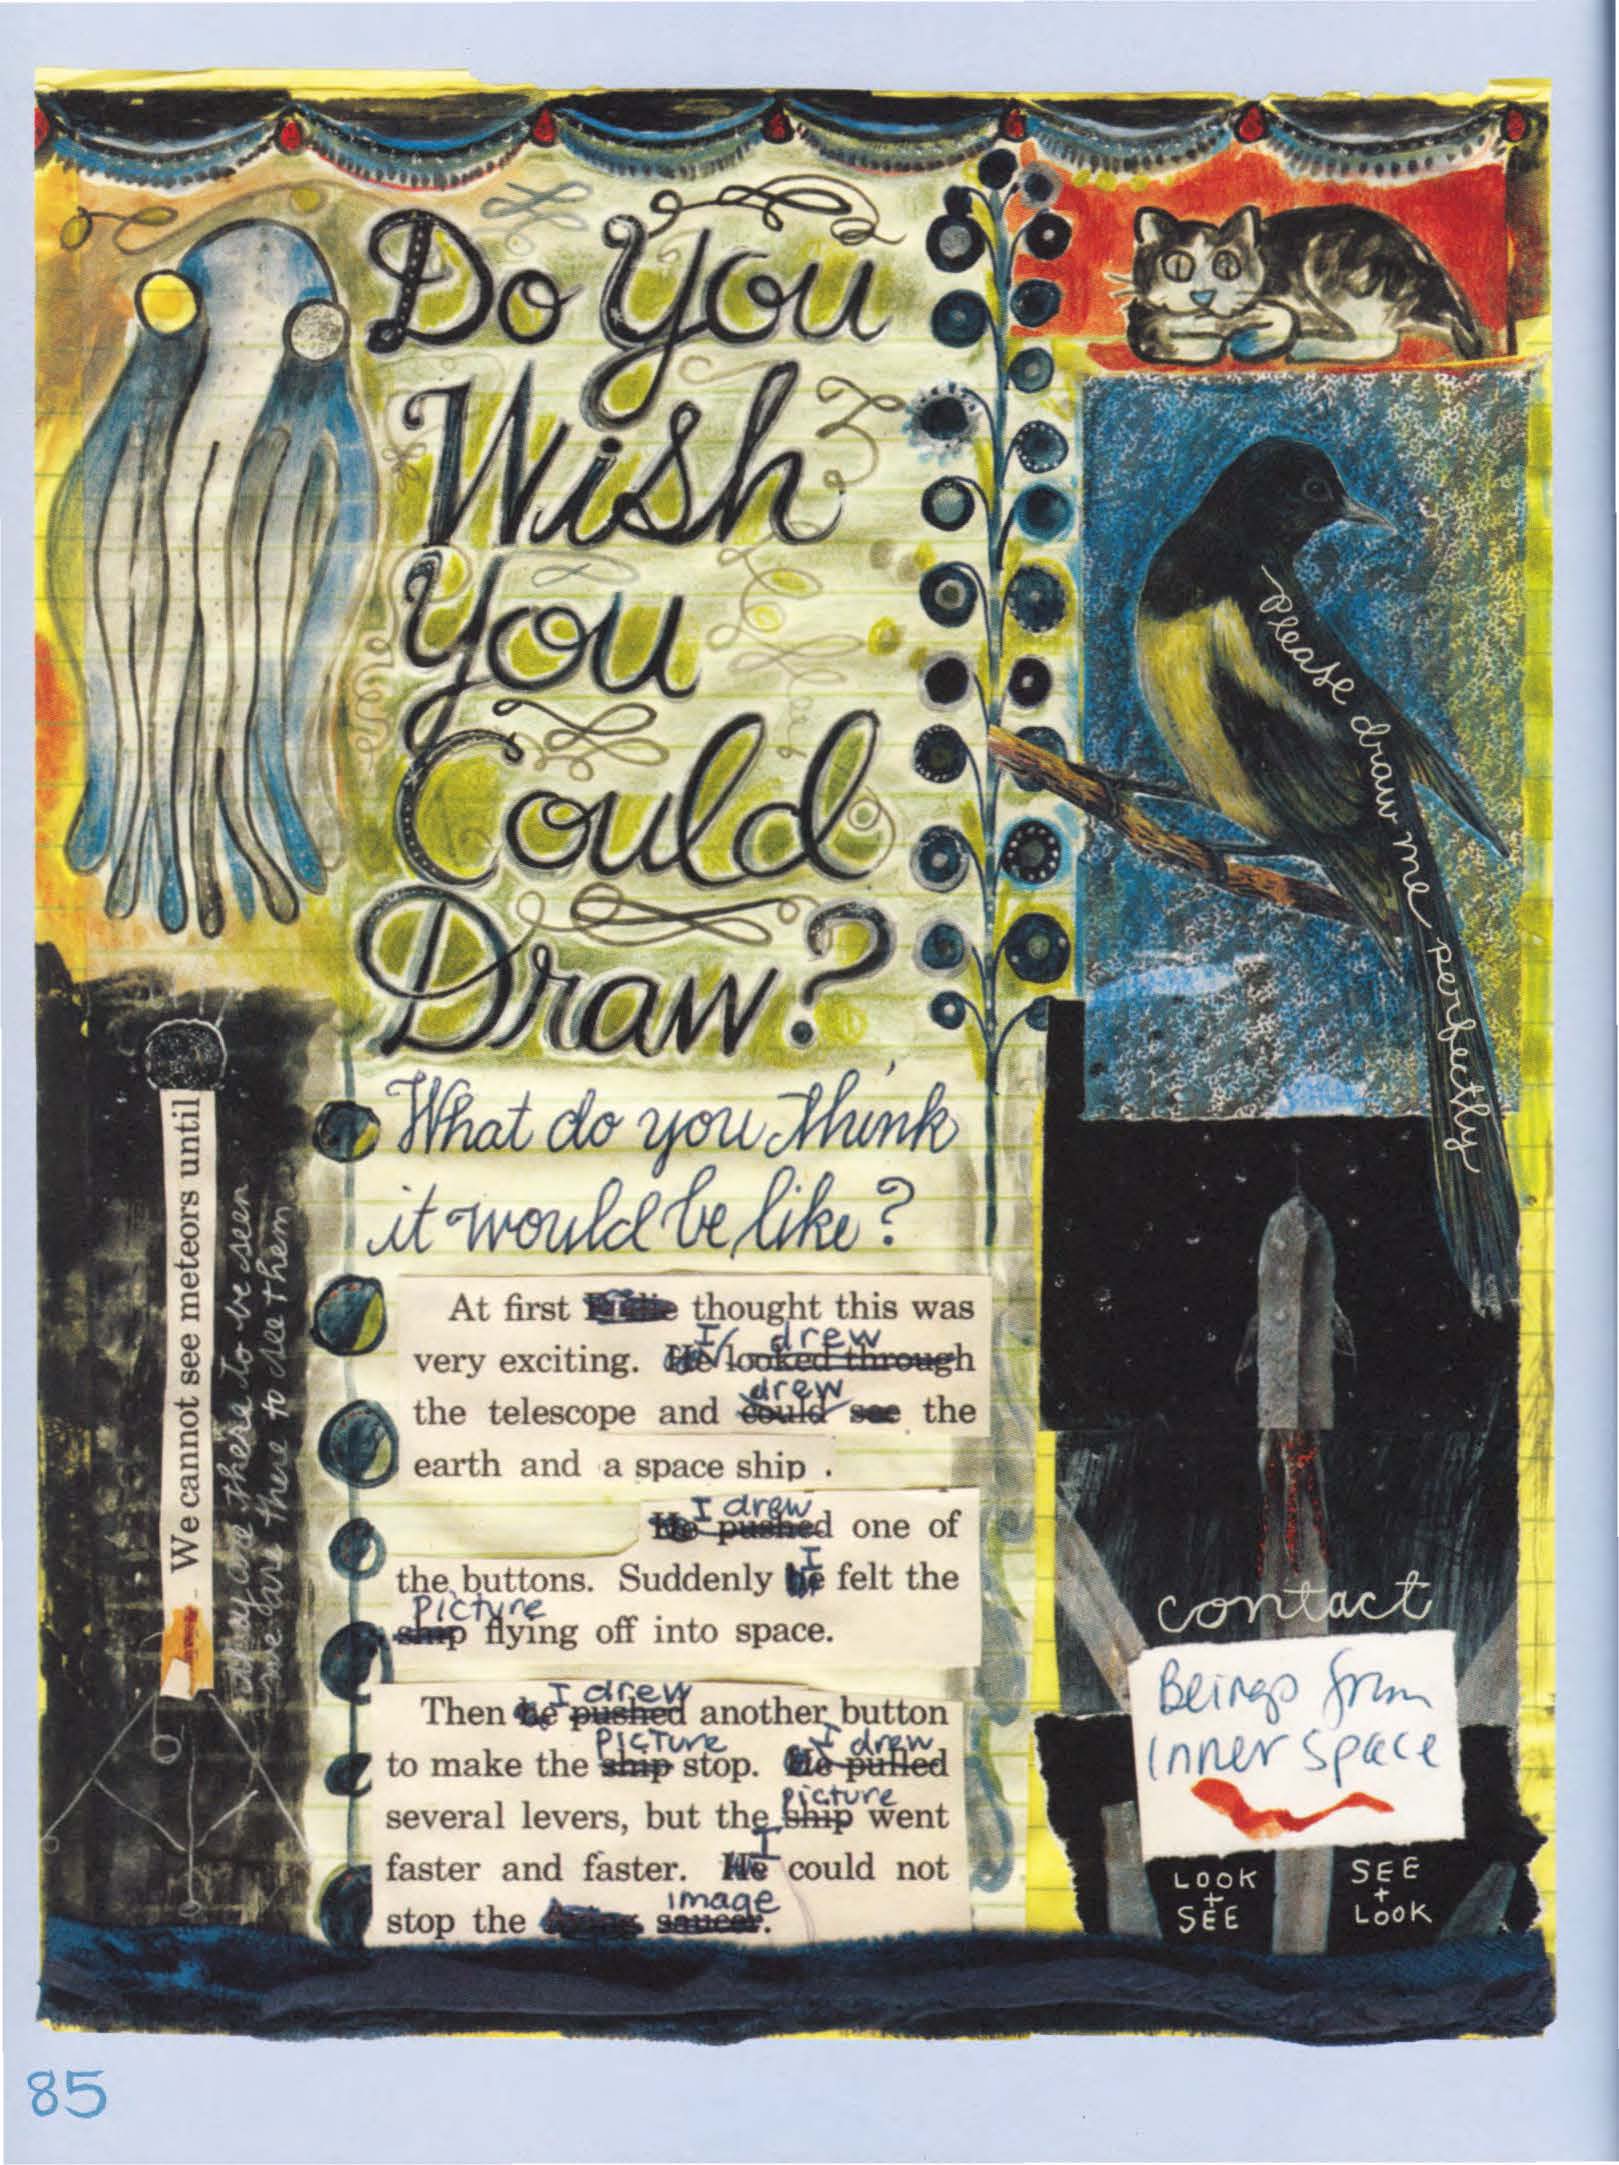 Do You
Wish
You
Could
Draw?
What do you think
it would be like?
At first thought this was
very exciting. He I looked through drew
the telescope and could see drew the
earth and a space ship .
He pushed I drew one of
the buttons. Suddenly he I felt the
ship picture flying off into space.
Then he pushed I drew another button
to make the ship picture stop. He pulled I drew
several levers, but the ship picture went
faster and faster. He I could not
stop the saucer image.
We cannot see meteors until
they are there to be seen
we are there to see them
Please draw me perfectly
contact
Beings from
Inner space
LOOK
+
SEE
SEE
+
LOOK
85